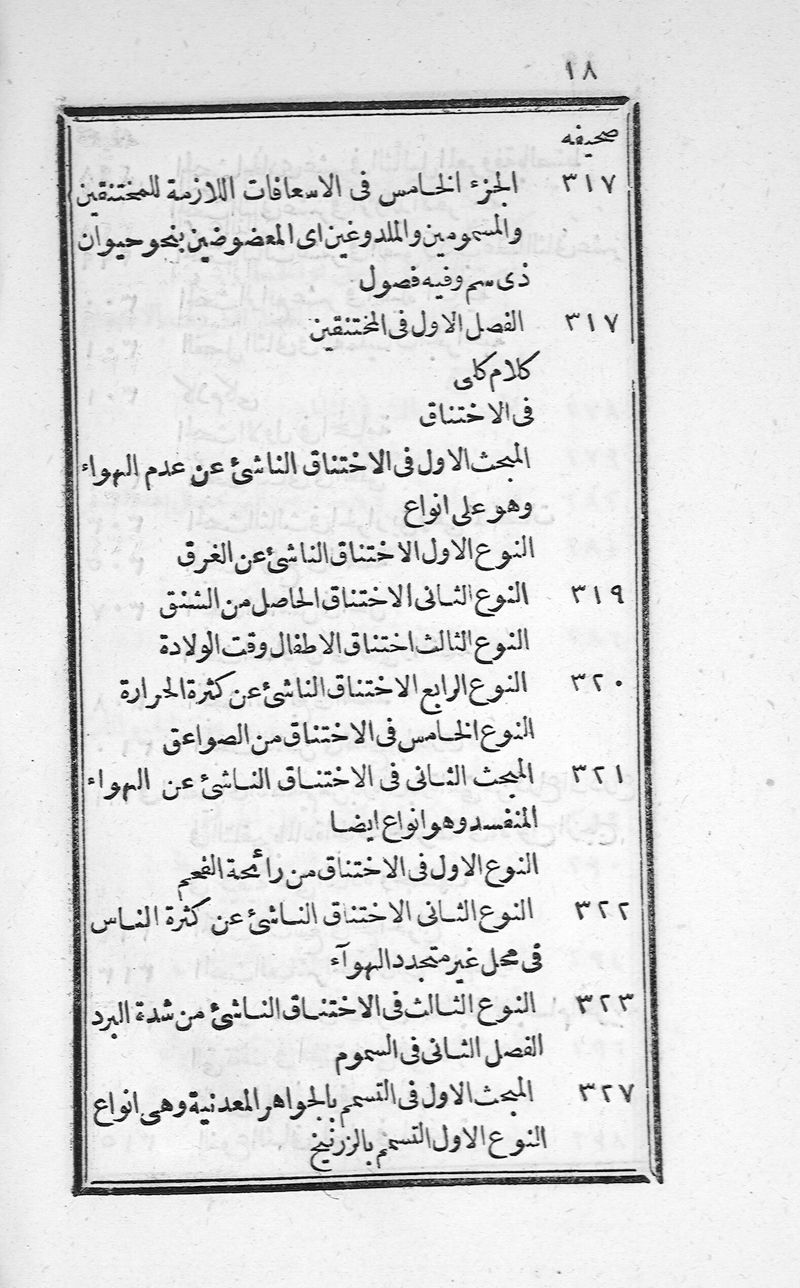 ١٨
صحيفه
٣١٧ الجزء الخامس فى الاسعافات اللازمة للمختنقين
والمسمومين والملدوغين اى المعضوضين بنحو حيوان
ذى سم وفيه فصول
٣١٧ الفصل الاول فى المختنقين
كلام كلى
فى الاختناق
المبحث الاول فى الاختناق الناشئ عن عدم الهواء
وهو على انواع
النوع الاول الاختناق الناشئ عن الغرق
٣١٩ النوع الثانى الاختناق الحاصل من الشنق
النوع الثالث اختناق الاطفال وقت الولادة
٣٢٠ النوع الرابع الاختناق الناشئ عن كثرة الحرارة
النوع الخامس فى الاختناق من الصواعق
٣٢١ المبحث الثانى فى الاختناق الناشئ عن الهواء
المنفسد وهو انواع ايضا
النوع الاول فى الاختناق من رائحة الفحم
٣٢٢ النوع الثانى الاختناق الناشئ عن كثرة الناس
فى محل غير متجدد الهوآء
٣٢٣ النوع الثالث فى الاختناق الناشئ من شدة البرد
الفصل الثانى فى السموم
٣٢٧ المبحث الاول فى التسمم بالجواهر المعدنية وهى انواع
النوع الاول التسمم بالزرنيخ